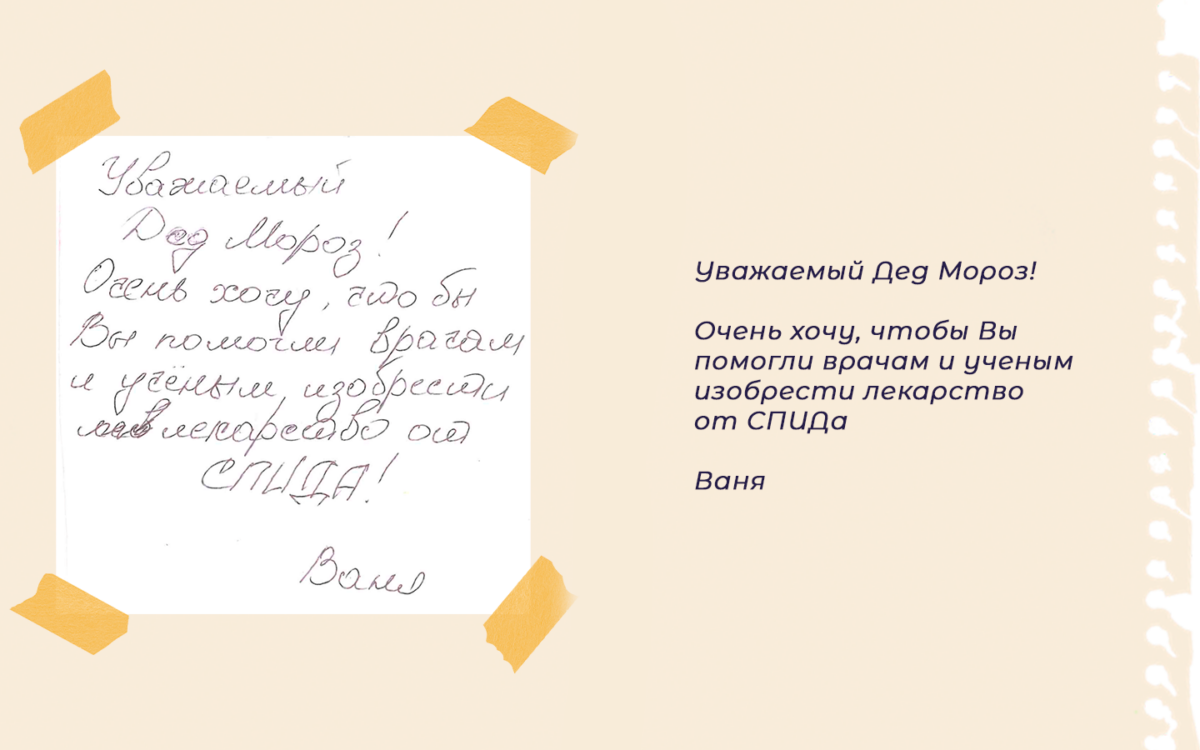 Уважаемый
Дед Мороз!
Очень хочу, что бы
Вы помогли врачам
и учёным изобрести
лекарство от
СПИДА!
Ваня
Уважаемый Дед Мороз!
Очень хочу, чтобы Вы
помогли врачам и ученым
изобрести лекарство
от СПИДа
Ваня